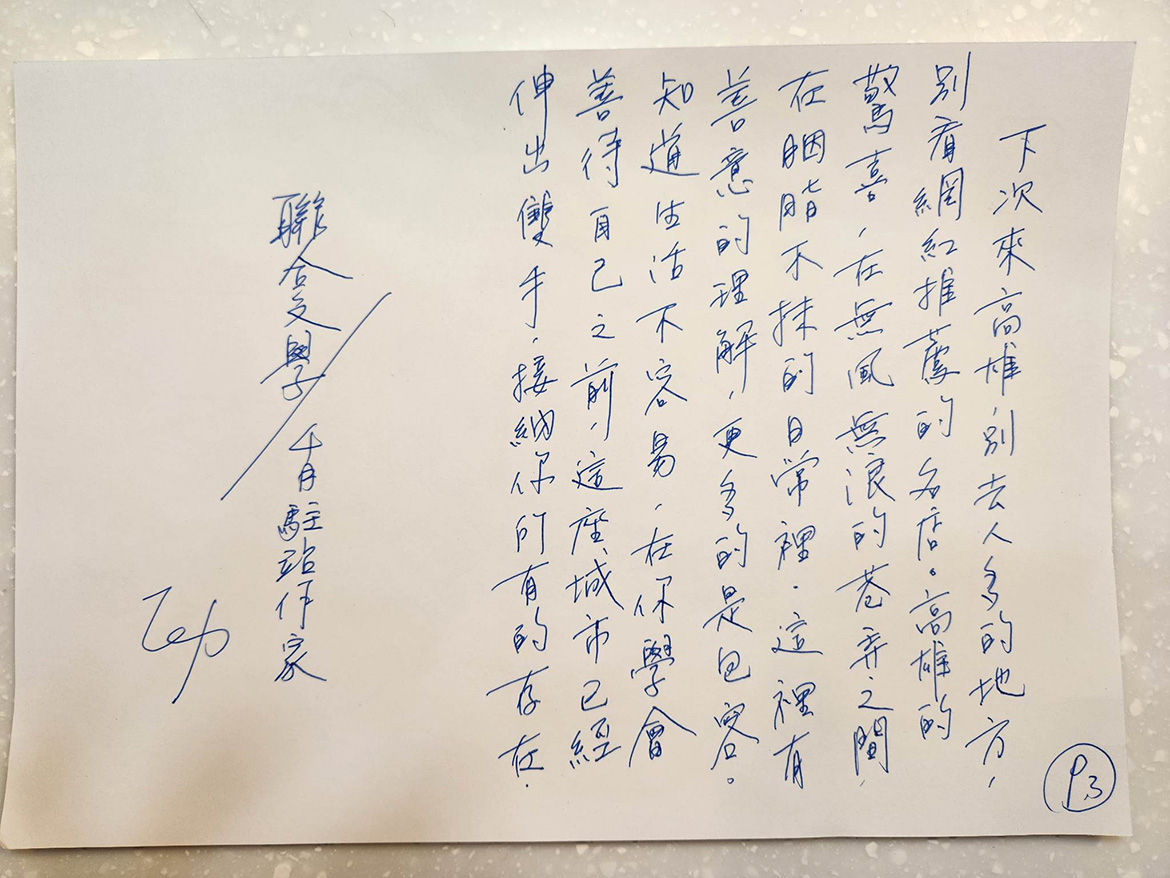 下次來高雄，別去人多的地方，
別看網紅推薦的名店。高雄的
驚喜，在無風無浪的巷弄之間，
在胭脂不抹的日常裡．這裡有
善意的理解，更多的是包容。
知道生活不容易，在你學會
善待自己之前，這座城市已經
伸出雙手，接納你所有的存在．
聯合文學
十月駐站作家
P3